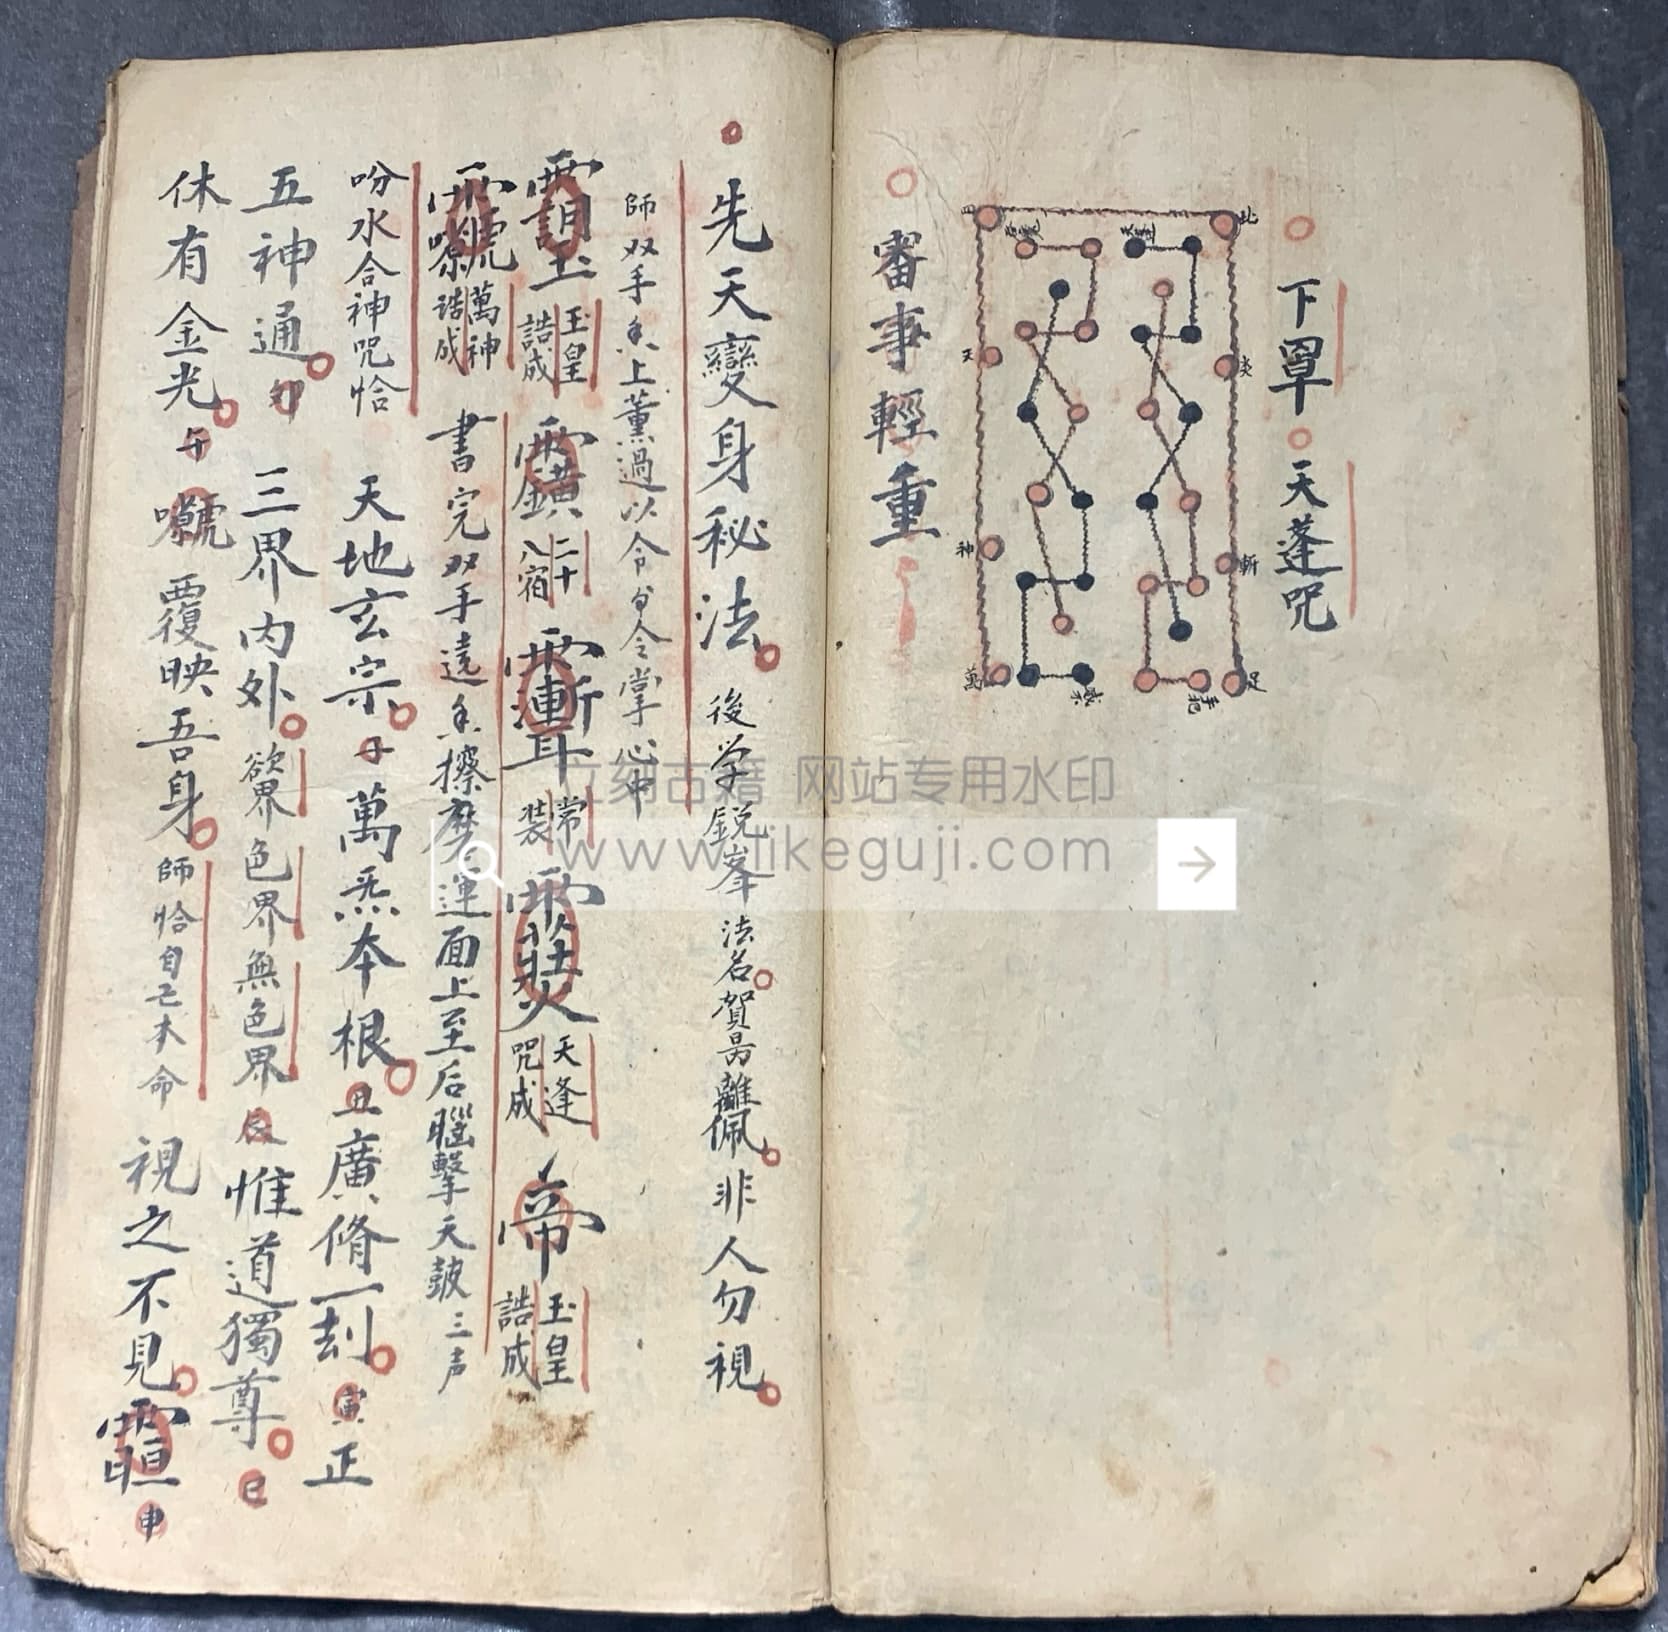 下罩 天蓬咒
北
炎
斬
足
天
神
萬
審事輕重
先天變身秘法 後学銳峯 法名賀昺離佩 非人勿視
師双手香上薰過以令
令掌心中
玉皇
誥成
二十
八宿
常
裝
天逢
咒成
帝
玉皇
誥成
萬神
誥成
書完双手遶香擦摩運面上至后腦擊天鼓三声
吩水合神咒恰
天地玄宗 子 萬炁本根 丑 廣脩一刦 寅 正
五神通 卯 三界內外 欲界色界無色界 辰 惟道獨尊 巳
休有金光 午 覆映吾身 師恰自己本命 視之不見 申
立刻古籍 网站专用水印
www.likeguji.com